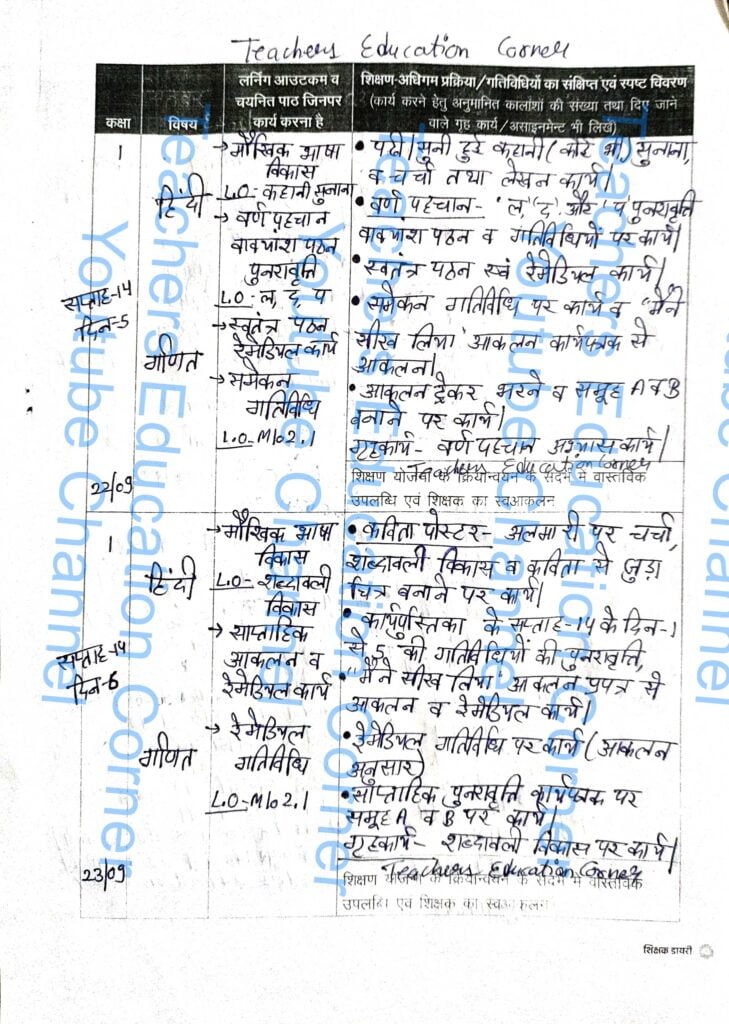 Teachers Education Corner
कक्षा
विषय
लर्निंग आउटकम व
चयनित पाठ जिनपर
कार्य करना है
शिक्षण-अधिगम प्रक्रिया/गतिविधियों का संक्षिप्त एवं स्पष्ट विवरण
(कार्य करने हेतु अनुमानित कालांशों की संख्या तथा दिए जाने
वाले गृह कार्य/असाइनमेंट भी लिखें)
1
सप्ताह-14
दिन-5
22/09
हिंदी
गणित
→ मौखिक भाषा
विकास
L.O- कहानी सुनाना
→ वर्ण पहचान
वाक्यांश पठन
पुनरावृत्ति
L.O- ल, द, प
→ स्वतंत्र पठन
रेमेडियल कार्य
→ समेकन
गतिविधि
L.O-M102.1
• पढ़ी/सुनी हुई कहानी (कोई भी) सुनाना,
व चर्चा तथा लेखन कार्य।
• वर्ण पहचान- 'ल' 'द' और 'प' पुनरावृत्ति
वाक्यांश पठन व गतिविधियों पर कार्य।
• स्वतंत्र पठन एवं रेमेडियल कार्य।
• समेकन गतिविधि पर कार्य व "मैंने
सीख लिया" आकलन कार्यपत्रक से
आकलन।
• आकलन ट्रेकर भरने व समूह A व B
बनाने पर कार्य।
गृहकार्य- वर्ण पहचान अभ्यास कार्य।
Teachers Education Corner
शिक्षण योजना के क्रियान्वयन के संदर्भ में वास्तविक
उपलब्धि एवं शिक्षक का स्वआकलन
1
सप्ताह-14
दिन-6
23/09
हिंदी
गणित
→ मौखिक भाषा
विकास
L.O- शब्दावली
विकास
→ साप्ताहिक
आकलन व
रेमेडियल कार्य
→ रेमेडियल
गतिविधि
L.O-M102.1
• कविता पोस्टर- अलमारी पर चर्चा,
शब्दावली विकास व कविता से जुड़ा
चित्र बनाने पर कार्य।
• कार्यपुस्तिका के सप्ताह-14 के दिन-1
से 5 की गतिविधियों की पुनरावृत्ति,
• "मैंने सीख लिया" आकलन प्रपत्र से
आकलन व रेमेडियल कार्य।
• रेमेडियल गतिविधि पर कार्य (आकलन
अनुसार)
• साप्ताहिक पुनरावृत्ति कार्यपत्रक पर
समूह A व B पर कार्य।
गृहकार्य- शब्दावली विकास पर कार्य।
Teachers Education Corner
शिक्षण योजना के क्रियान्वयन के संदर्भ में वास्तविक
उपलब्धि एवं शिक्षक का स्वआकलन
शिक्षक डायरी
Teachers Education Corner
Youtube Channel
Teachers Education Corner
Youtube Channel